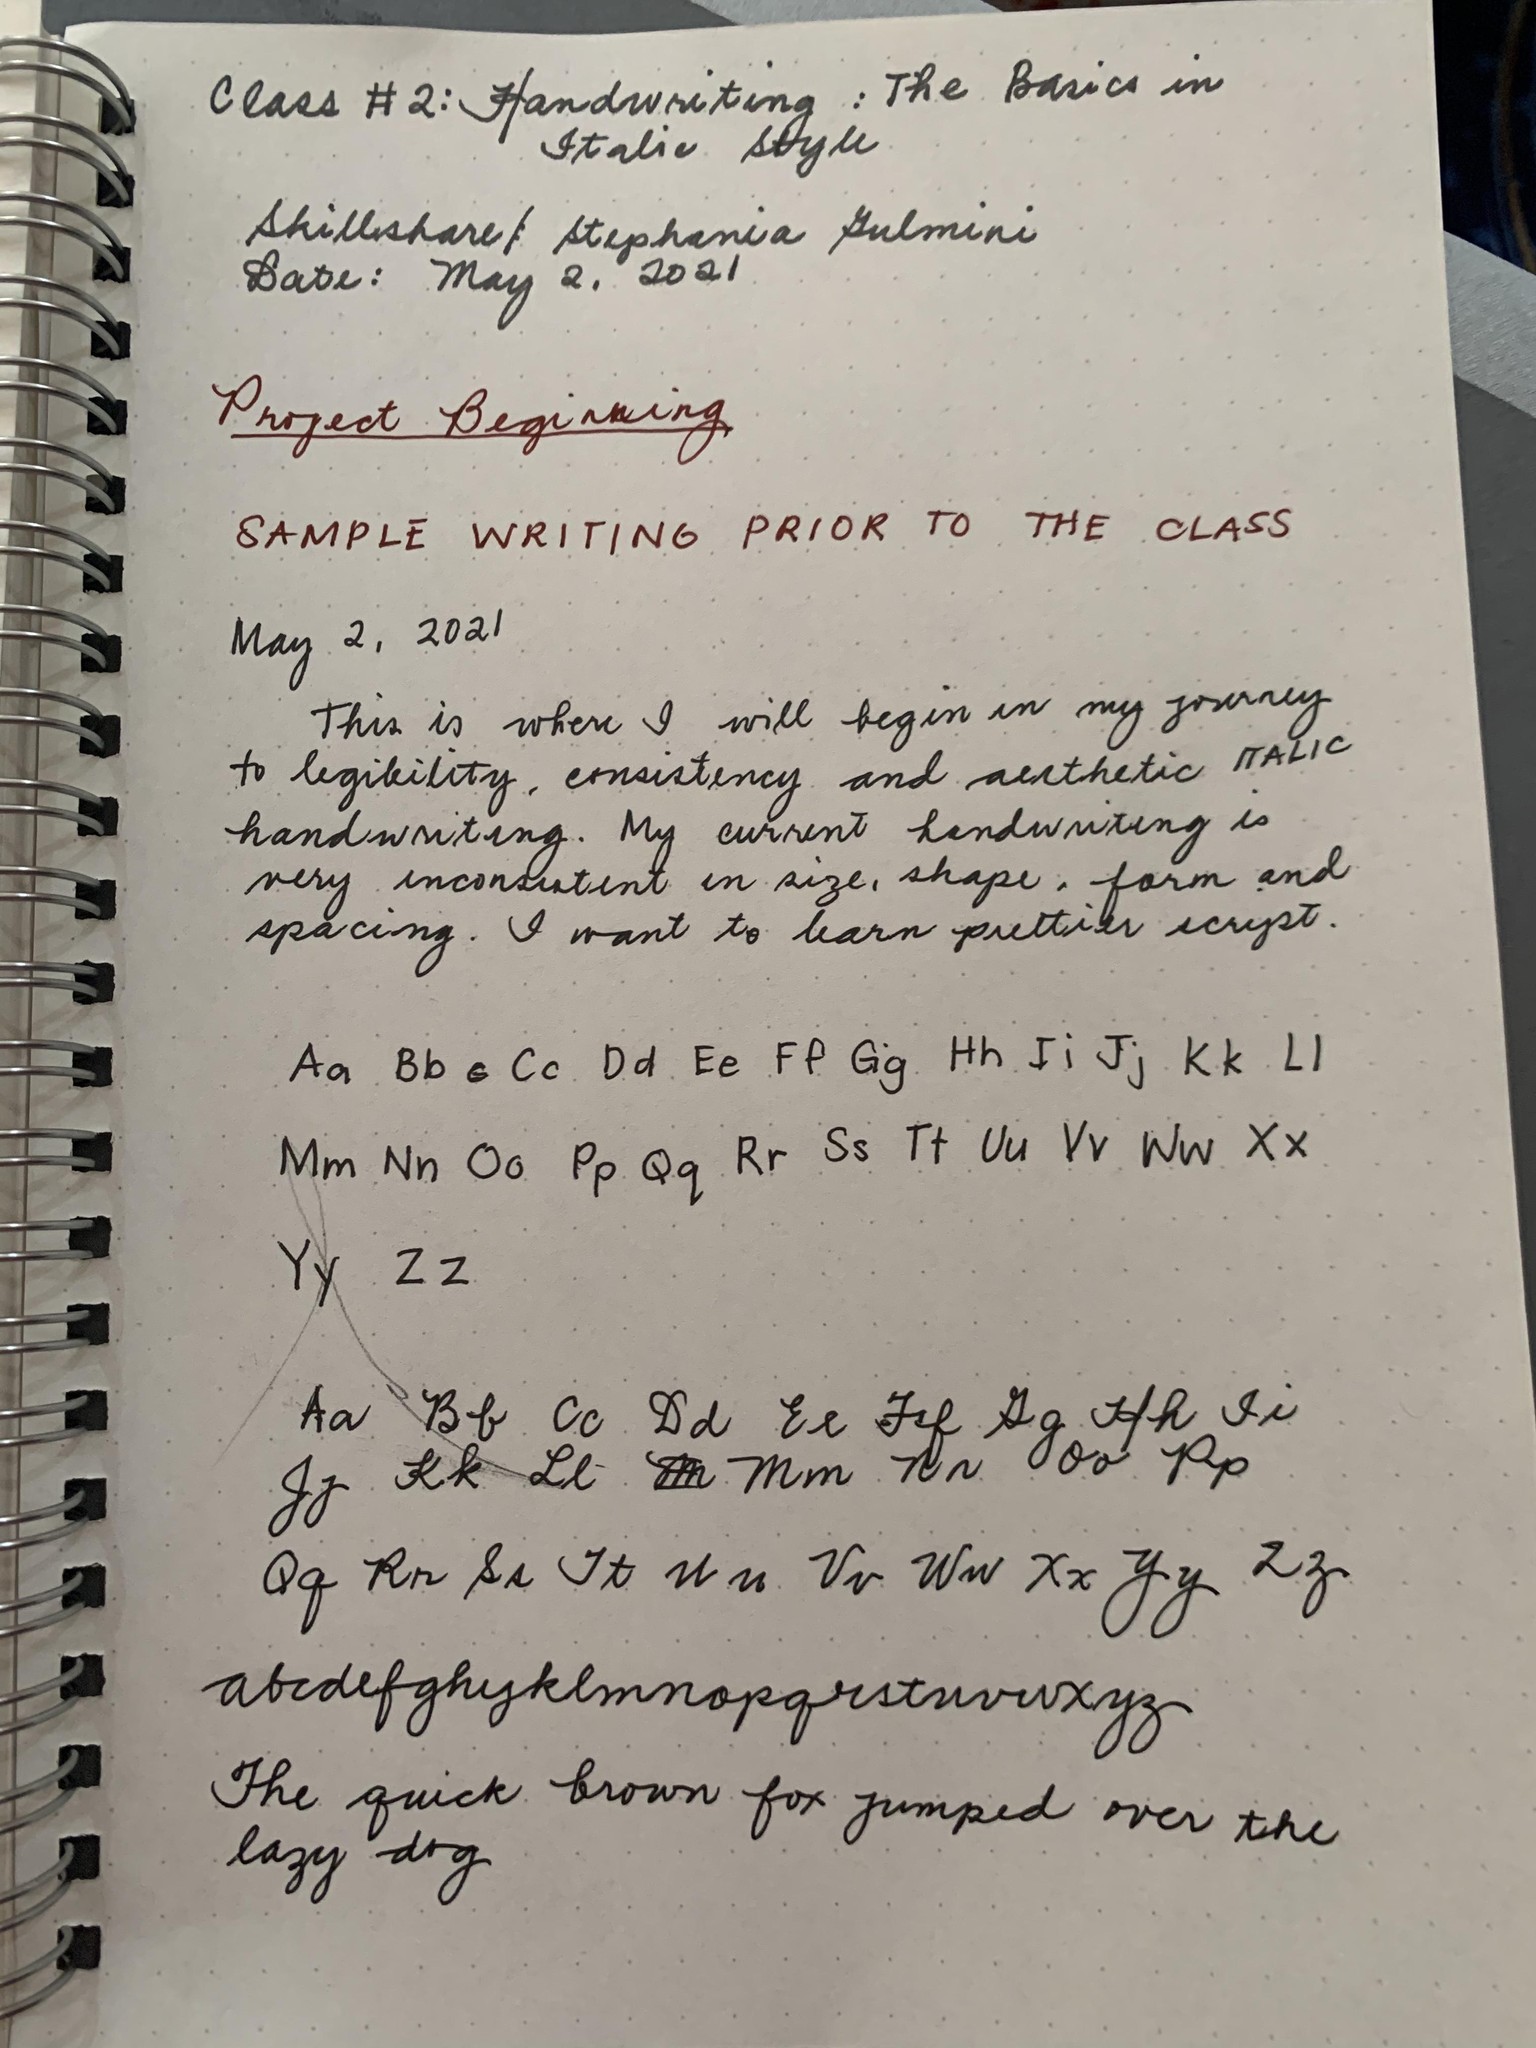 Class #2: Handwriting: The Basics in
Italic Style
Skillshare/ Stephania Gulmini
Date: May 2, 2021
Project Beginning
SAMPLE WRITING PRIOR TO THE CLASS
May 2, 2021
This is where I will begin in my journey
to legibility, consistency and aesthetic ITALIC
handwriting. My current handwriting is
very inconsistent in size, shape, form and
spacing. I want to learn prettier script.
Aa Bb c Cc Dd Ee Ff Gg Hh Ii Jj Kk Ll
Mm Nn Oo Pp Qq Rr Ss Tt Uu Vv Ww Xx
Yy Zz
Aa Bb Cc Dd Ee Fsf Gg Hh Ii
Jj Kk Ll Mm Nn Oo Pp
Qq Rr Ss Tt Uu Vv Ww Xx Yy Zz
abcdefghijklmnopqrstuvwxyz
The quick brown fox jumped over the
lazy dog